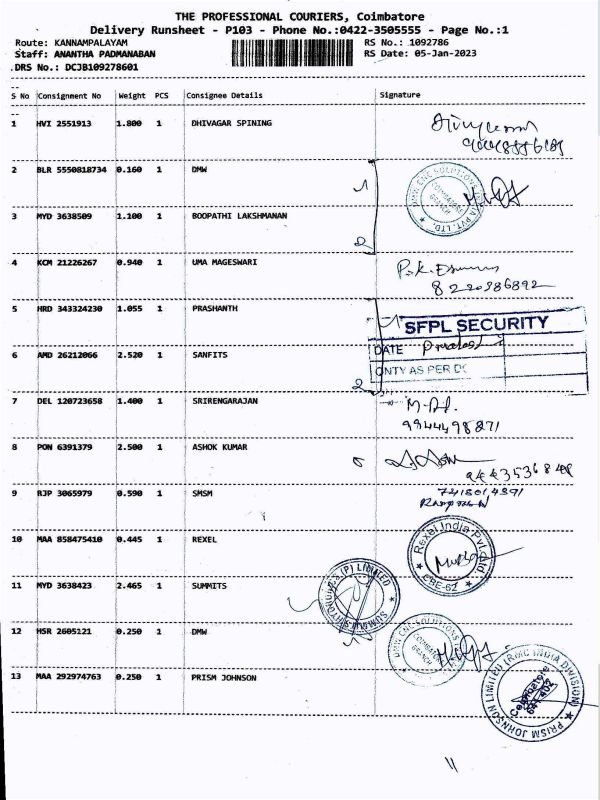 THE PROFESSIONAL COURIERS, Coimbatore
Delivery Runsheet - P103 - Phone No.:0422-3505555 - Page No.:1
Route: KANNAMPALAYAM RS No.: 1092786
Staff: ANANTHA PADMANABAN RS Date: 05-Jan-2023
DRS No.: DCJB109278601
S No Consignment No Weight PCS Consignee Details Signature
1 HVI 2551913 1.800 1 DHIVAGAR SPINING
2 BLR 5550818734 0.160 1 DMW
DMW CNC SOLUTIONS INDIA PVT. LTD. COIMBATORE BRANCH
3 MYD 3638509 1.100 1 BOOPATHI LAKSHMANAN
2
4 KCM 21226267 0.940 1 UMA MAGESWARI
8220986892
5 HRD 343324230 1.055 1 PRASHANTH
SFPL SECURITY
DATE
6 AMD 26212066 2.520 1 SANFITS
QNTY AS PER DC
2
7 DEL 120723658 1.400 1 SRIRENGARAJAN
9944498271
8 PON 6391379 2.500 1 ASHOK KUMAR
9 RJP 3065979 0.590 1 SMSM
10 MAA 858475410 0.445 1 REXEL
Rexel India Pvt Ltd CBE-62
11 MYD 3638423 2.465 1 SUMMITS
(P) LIMITED
12 HSR 2605121 0.250 1 DMW
DMW CNC SOLUTIONS COIMBATORE BRANCH
13 MAA 292974763 0.250 1 PRISM JOHNSON
PRISM JOHNSON LIMITED (RMC INDIA DIVISION) Coimbatore